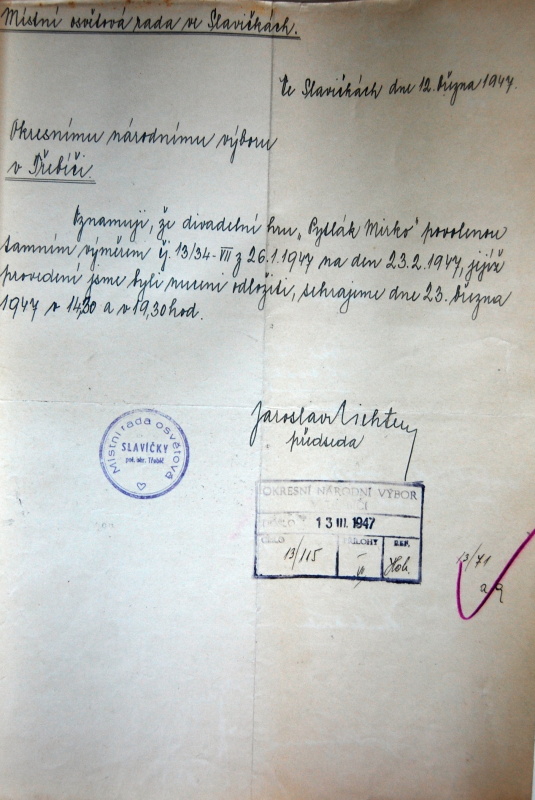 Místní osvětová rada ve Slavičkách.
Ve Slavičkách dne 12. března 1947.
Okresnímu národnímu výboru
v Třebíči.
Oznamuji, že divadelní hru „Pytlák Mirko" povolenou
tamním výměrem čj. 13/34-VII z 26.1.1947 na den 23.2.1947, jejíž
provedení jsme byli nuceni odložiti, sehrajeme dne 23. března
1947 v 14,30 a v 19,30 hod.
Jaroslav Richter
předseda
Místní rada osvětová
SLAVIČKY
pol. okr. Třebíč
OKRESNÍ NÁRODNÍ VÝBOR
DOŠLO 13 III. 1947
ČÍSLO PŘÍLOHY REF.
13/115
13/71